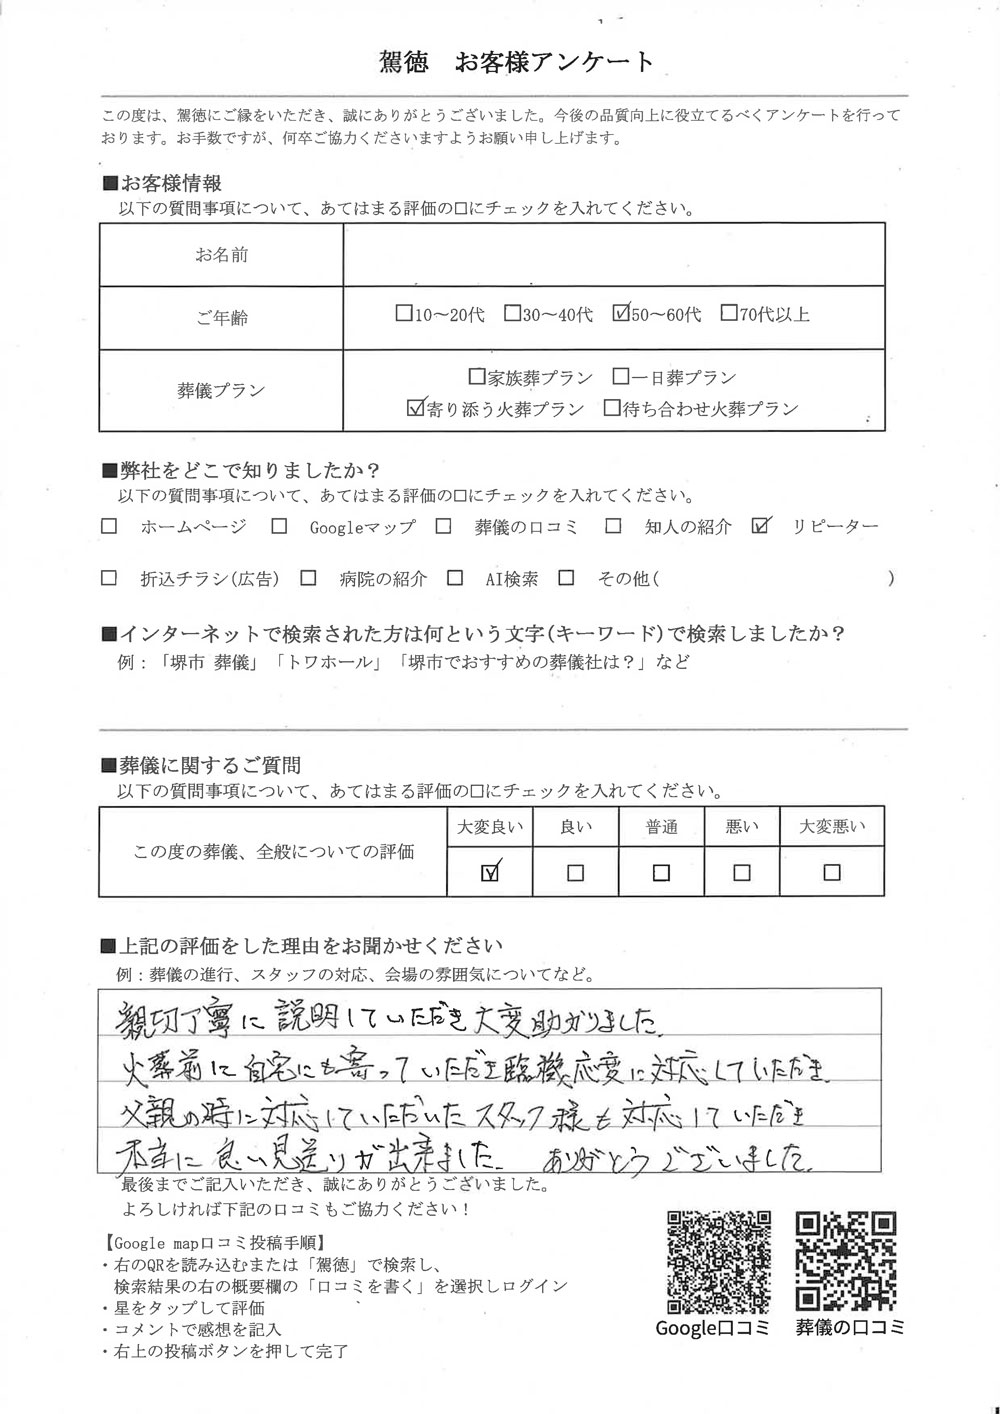 駕徳　お客様アンケート
この度は、駕徳にご縁をいただき、誠にありがとうございました。今後の品質向上に役立てるべくアンケートを行って
おります。お手数ですが、何卒ご協力くださいますようお願い申し上げます。
■お客様情報
以下の質問事項について、あてはまる評価の□にチェックを入れてください。
お名前
ご年齢 □10～20代 □30～40代 ☑50～60代 □70代以上
葬儀プラン □家族葬プラン □一日葬プラン
☑寄り添う火葬プラン □待ち合わせ火葬プラン
■弊社をどこで知りましたか？
以下の質問事項について、あてはまる評価の□にチェックを入れてください。
□ ホームページ □ Googleマップ □ 葬儀の口コミ □ 知人の紹介 ☑ リピーター
□ 折込チラシ(広告) □ 病院の紹介 □ AI検索 □ その他( )
■インターネットで検索された方は何という文字(キーワード)で検索しましたか？
例：「堺市 葬儀」「トワホール」「堺市でおすすめの葬儀社は？」など
■葬儀に関するご質問
以下の質問事項について、あてはまる評価の□にチェックを入れてください。
この度の葬儀、全般についての評価 大変良い 良い 普通 悪い 大変悪い
☑ □ □ □ □
■上記の評価をした理由をお聞かせください
例：葬儀の進行、スタッフの対応、会場の雰囲気についてなど。
親切丁寧に説明していただき大変助かりました。
火葬前に自宅にも寄っていただき臨機応変に対応していただき、
父親の時に対応していただいたスタッフ様も対応していただき
本当に良い見送りが出来ました。 ありがとうございました。
最後までご記入いただき、誠にありがとうございました。
よろしければ下記の口コミもご協力ください！
【Google map口コミ投稿手順】
・右のQRを読み込むまたは「駕徳」で検索し、
検索結果の右の概要欄の「口コミを書く」を選択しログイン
・星をタップして評価
・コメントで感想を記入
・右上の投稿ボタンを押して完了
Google口コミ 葬儀の口コミ